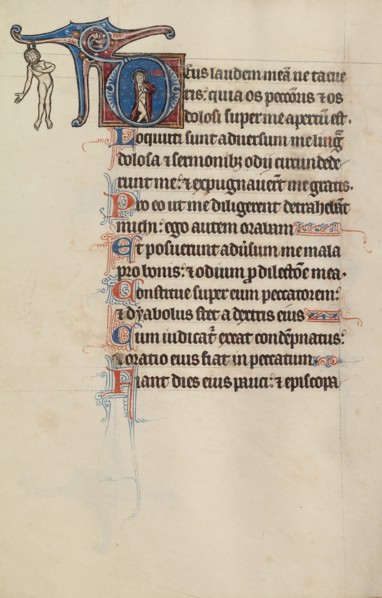 Deus laudem meā ne tacue
ris: quia os peccōris ⁊ os
dolosi super me apertū est.
Locuti sunt aduersum me lingᷓ
dolosa ⁊ sermonibꝫ odii circundede
runt me: ⁊ expugnauerr̄t me gratis.
Pro eo ut me diligerent detrahebāt
michi: ego autem orabam
Et posuerunt aduſum me mala
pro bonis: ⁊ odium ꝓ dilectōne mea.
Constitue super eum peccatorem:
⁊ dyabolus stet a dextris eius
Cum iudicat᷑ exeat condēpnatus:
⁊ oratio eius fiat in peccatum
Fiant dies eius pauci: ⁊ episcopa